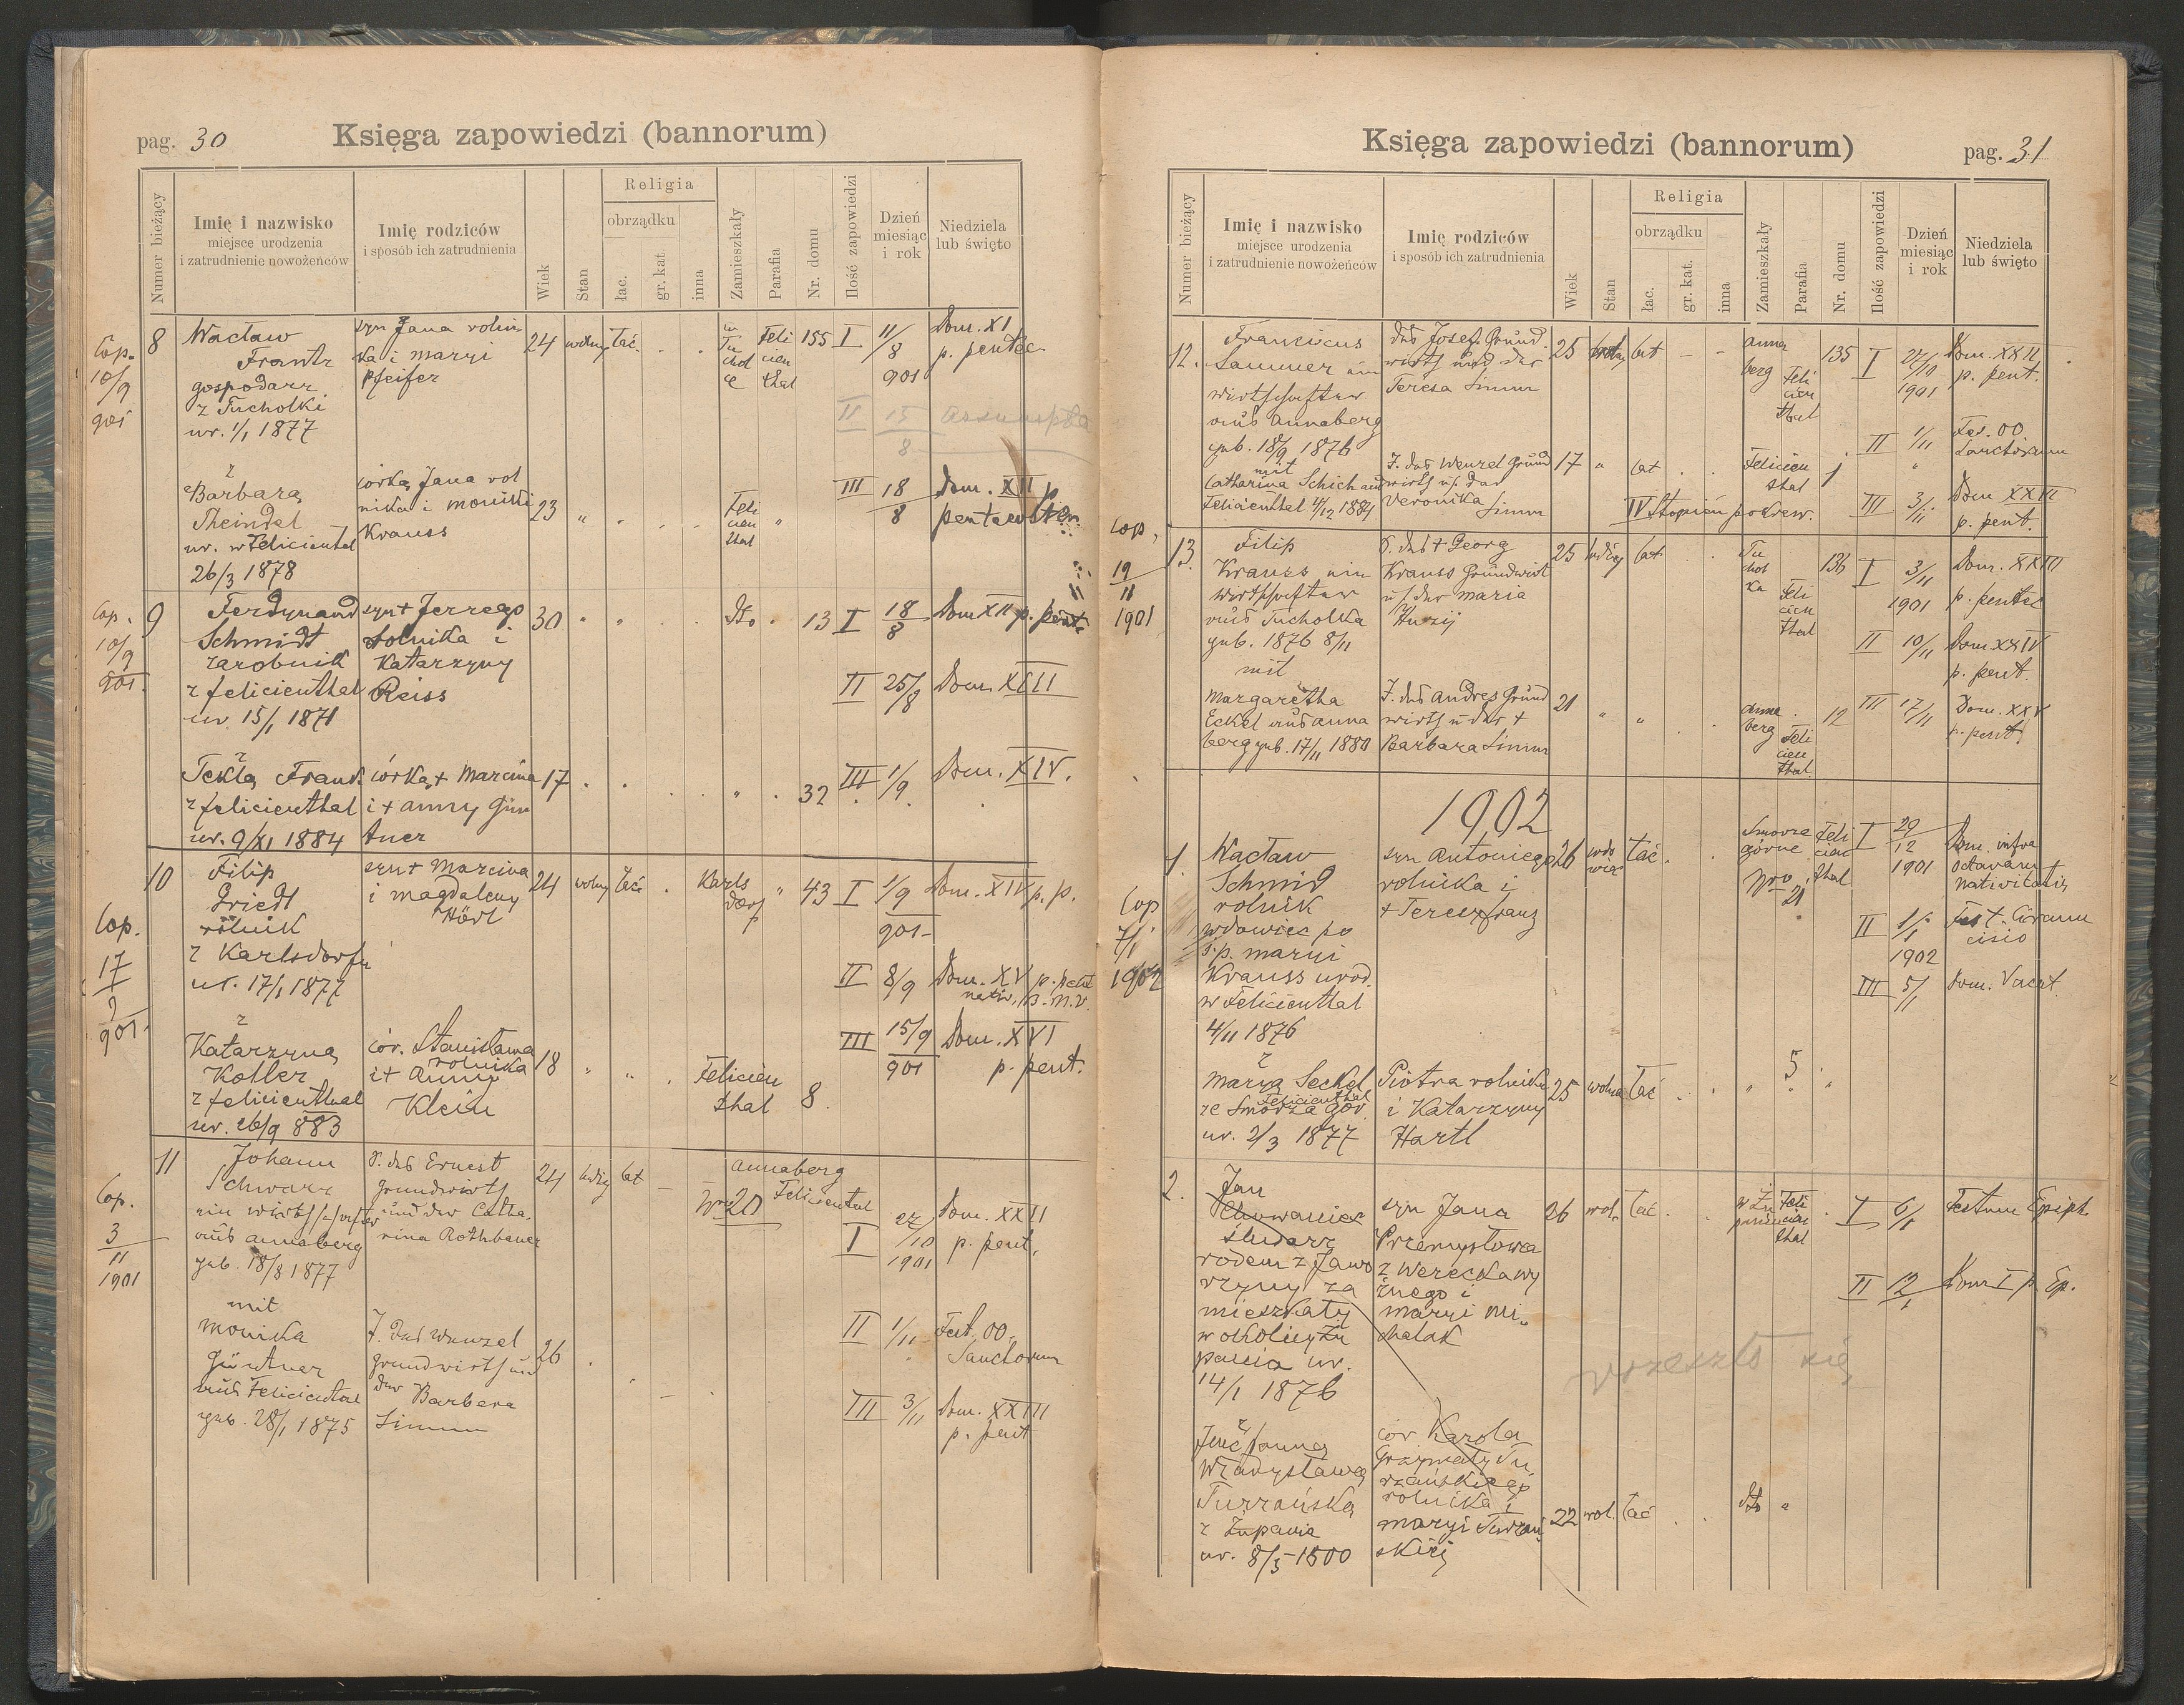 pag. 30
Księga zapowiedzi (bannorum)
Numer bieżący
Imię i nazwisko
miejsce urodzenia
i zatrudnienie nowożeńców
Imię rodziców
i sposób ich zatrudnienia
Wiek
Stan
Religia
obrządku
łac.
gr. kat
inna
Zamieszkały
Parafia
Nr. domu
Ilość zapowiedzi
Dzień
miesiąc
i rok
Niedziela
lub święto
Cop.
10/9
901
8
Wacław
Frantz
gospodarz
z Tucholki
ur. 1/1 1877
syn Jana rolni
ka i Maryi
Pfeifer
24 wolny łac.
w
Tu
chol
ce
Feli
cien
thal
155 I 11/8 901
Dom. XI
p. pentec.
II 15/8 Assumpta
z
Barbarą
Theindel
ur. w Felicienthal
26/3 1878
córką Jana rol
nika i Moniki
Krauss
23 "
Feli
cien
thal
"
III 18/8
Dom. XII p.
pentecosten
Cop.
10/9
901.
9
Ferdynand
Schmidt
zarobnik
z Felicienthal
ur. 15/1 1871
syn + Jerzego
rolnika i
Katarzyny
Reiss
30 " "
dto.
13 I 18/8 Dom XII p. pent.
II 25/8 Dom. XIII
z
Teklą Frank
z Felicienthal
ur. 9/XI 1884
córką + Marcina
i + Anny Gün
tner
17
32 III 1/9 Dom. XIV.
Cop.
17
9
901.
10
Filip
Friedl
rolnik
z Karlsdorfu
ur. 17/1 1877
syn + Marcina
i Magdaleny
Hörl
24 wolny łać.
Karls
dorf
" 43 I 1/9 901
Dom. XIV p. p.
II 8/9 Dom. XV p. pent
nativ. B. M. V.
z
Katarzyną
Kotler
z Felicienthal
ur. 26/9 883
cór. Stanisława
rolnika
i + Anny
Klein
18 " "
Felicien
thal
8
III 15/9 901
Dom. XVI
p. pent.
Cop.
3
11
1901
11
Johann
Schwarz
ein Wirthschafter
aus Annaberg
geb. 18/8 1877
S. des Ernest
Grundwirth
und der Catha-
rina Rothbauer
24 ledig lat
Annaberg
Nro 20
Felicienthal
I 27/10 1901
Dom. XXII
p. pent.
mit
Monika
Güntner
aus Felicienthal
geb. 28/1 1875
T. des Wenzel
Grundwirth und
der Barbara
Limm
26
II 1/11 Fest. OO.
Sanctorum
III 3/11 Dom. XXIII
p. pent
pag. 31
Księga zapowiedzi (bannorum)
Numer bieżący
Imię i nazwisko
miejsce urodzenia
i zatrudnienie nowożeńców
Imię rodziców
i sposób ich zatrudnienia
Wiek
Stan
Religia
obrządku
łac.
gr. kat.
inna
Zamieszkały
Parafia
Nr. domu
Ilość zapowiedzi
Dzień
miesiąc
i rok
Niedziela
lub święto
12.
Franciscus
Lammer ein
Wirthschafter
aus Annaberg
geb. 18/9 1876
des Josef Grund.
wirth und der
Teresa Limm
25 lat — —
Anna
berg
Feli
cien
thal
135 I 27/10 1901
Dom. XXII
p. pent.
II 1/11
Fes. OO
Sanctorum
mit
Catharina Schich aus
Felicienthal 4/12 1884
T. des Wenzel Grund
wirth u. der
Veronika Limm
17 " lat
Felicien
thal
1
IV Stopień pokrew.
III 3/11
Dom XXIII
p. pent.
Cop.
19
11
1901
13.
Filip
Krauss ein
Wirthschafter
aus Tucholka
geb. 1876 8/11
S. des + Georg
Krauss Grundwirt
u. der Maria
Huzij
25 ledig lat
Tu
chol
ka
Feli
cien
thal
136 I 3/11 1901
Dom. XXIII
p. pentec
II 10/11 Dom. XXIV
p. pent.
mit
Margaretha
Eckel aus Anna
berg geb. 17/11 1880
T. des Andres Grund
wirth u der +
Barbara Limm
21 " "
Anna
berg
Feli
cien
thal
12 III 17/11
Dom. XXV
p. pent.
1902
Cop
7/1
1902
1.
Wacław
Schmid
rolnik
wdowiec po
ś. p. Maryi
Krauss urod.
w Felicienthal
4/11 1876
syn Antoniego
rolnika i
+ Terezy Franz
26 wdo
wiec
łać.
Smorze
górne
Nro 21
Feli
cien
thal
I 29/12 1901
Dom. infra
octavam
nativitatis
II 1/1 1902
Fest. Circum
cisio
III 5/1 Dom. Vacat.
z
Maryą Seckel
Felicienthal
ze Smorza gór
ur. 2/3 1877
Piotra rolnika
i Katarzyny
Hartl
25 wolna łać
" 5 "
2.
Jan
Chowaniec
ślusarz
rodem z Jawo
rzyny za
mieszkały
w okolicy Żu
pania ur.
14/1 1876
syn Jana
Przemysłowca
z Werecka wy
żnego i
Maryi Mi-
chalak
26 wol. łać.
w Żu
paniu
Feli
cien
thal
I 6/1 Festum Epiph.
II 12/1 Dom I p. Ep.
rozeszło się
z
Władysławą
Turzańską
z Żupania
ur. 8/5 1800
cór Karola
Grzymały Tu
rzańskiego
rolnika i
Maryi Turzań
skiej
22 wol. łać
dto "